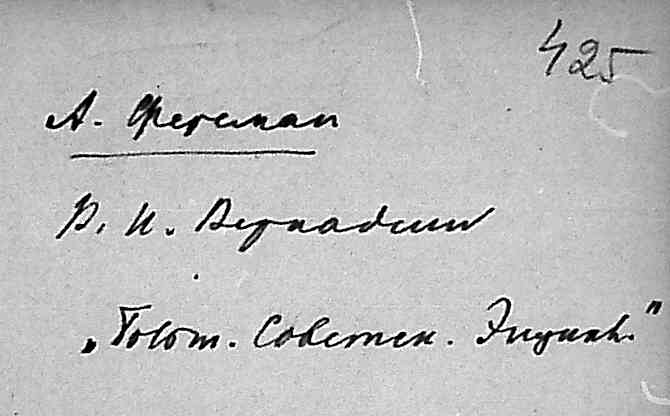 425
А. Ферсман
В. И. Вернадский
„Больш. Советск. Энцикл."